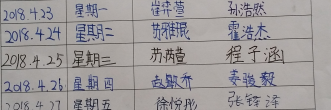 2018.4.23 星期一 崔梓萱 孙浩然
2018.4.24 星期二 苏雅琨 霍浩杰
2018.4.25 星期三 苏芮萱 程子涵
2018.4.26 星期四
2018.4.27 星期五 徐份彤 张锋泽